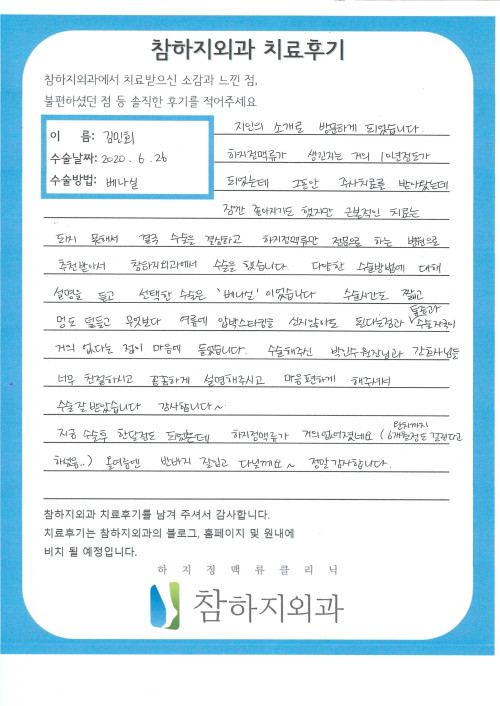 참하지외과 치료후기
참하지외과에서 치료받으신 소감과 느낀 점,
불편하셨던 점 등 솔직한 후기를 적어주세요
이 름: 김민희
수술날짜: 2020. 6. 26
수술방법: 베나실
지인의 소개로 방문하게 되었습니다.
하지정맥류가 생긴지는 거의 10년정도가
되었는데 그동안 주사치료를 받아왔는데
잠깐 좋아지기도 했지만 근본적인 치료는
되지 못해서 결국 수술을 결심하고 하지정맥류만 전문으로 하는 병원으로
추천받아서 참하지외과에서 수술을 했습니다. 다양한 수술방법에 대해
설명을 듣고 선택한 수술은 '베나실' 이었습니다 수술시간도 짧고
멍도 덜들고 무엇보다 여름에 압박스타킹을 신지않아도 된다는점과 통증과 수술자국이
거의 없다는 점이 마음에 들었습니다. 수술해주신 박인수원장님과 간호사님들
너무 친절하시고 꼼꼼하게 설명해주시고 마음편하게 해주셔서
수술 잘 받았습니다 감사합니다~
지금 수술후 한달정도 되었는데 하지정맥류가 거의없어졌네요 (완치까지 6개월정도 걸린다고
하셨음..) 올여름엔 반바지 잘입고 다닐께요~ 정말감사합니다.
참하지외과 치료후기를 남겨 주셔서 감사합니다.
치료후기는 참하지외과의 블로그, 홈페이지 및 원내에
비치 될 예정입니다.
하지정맥류클리닉
참하지외과